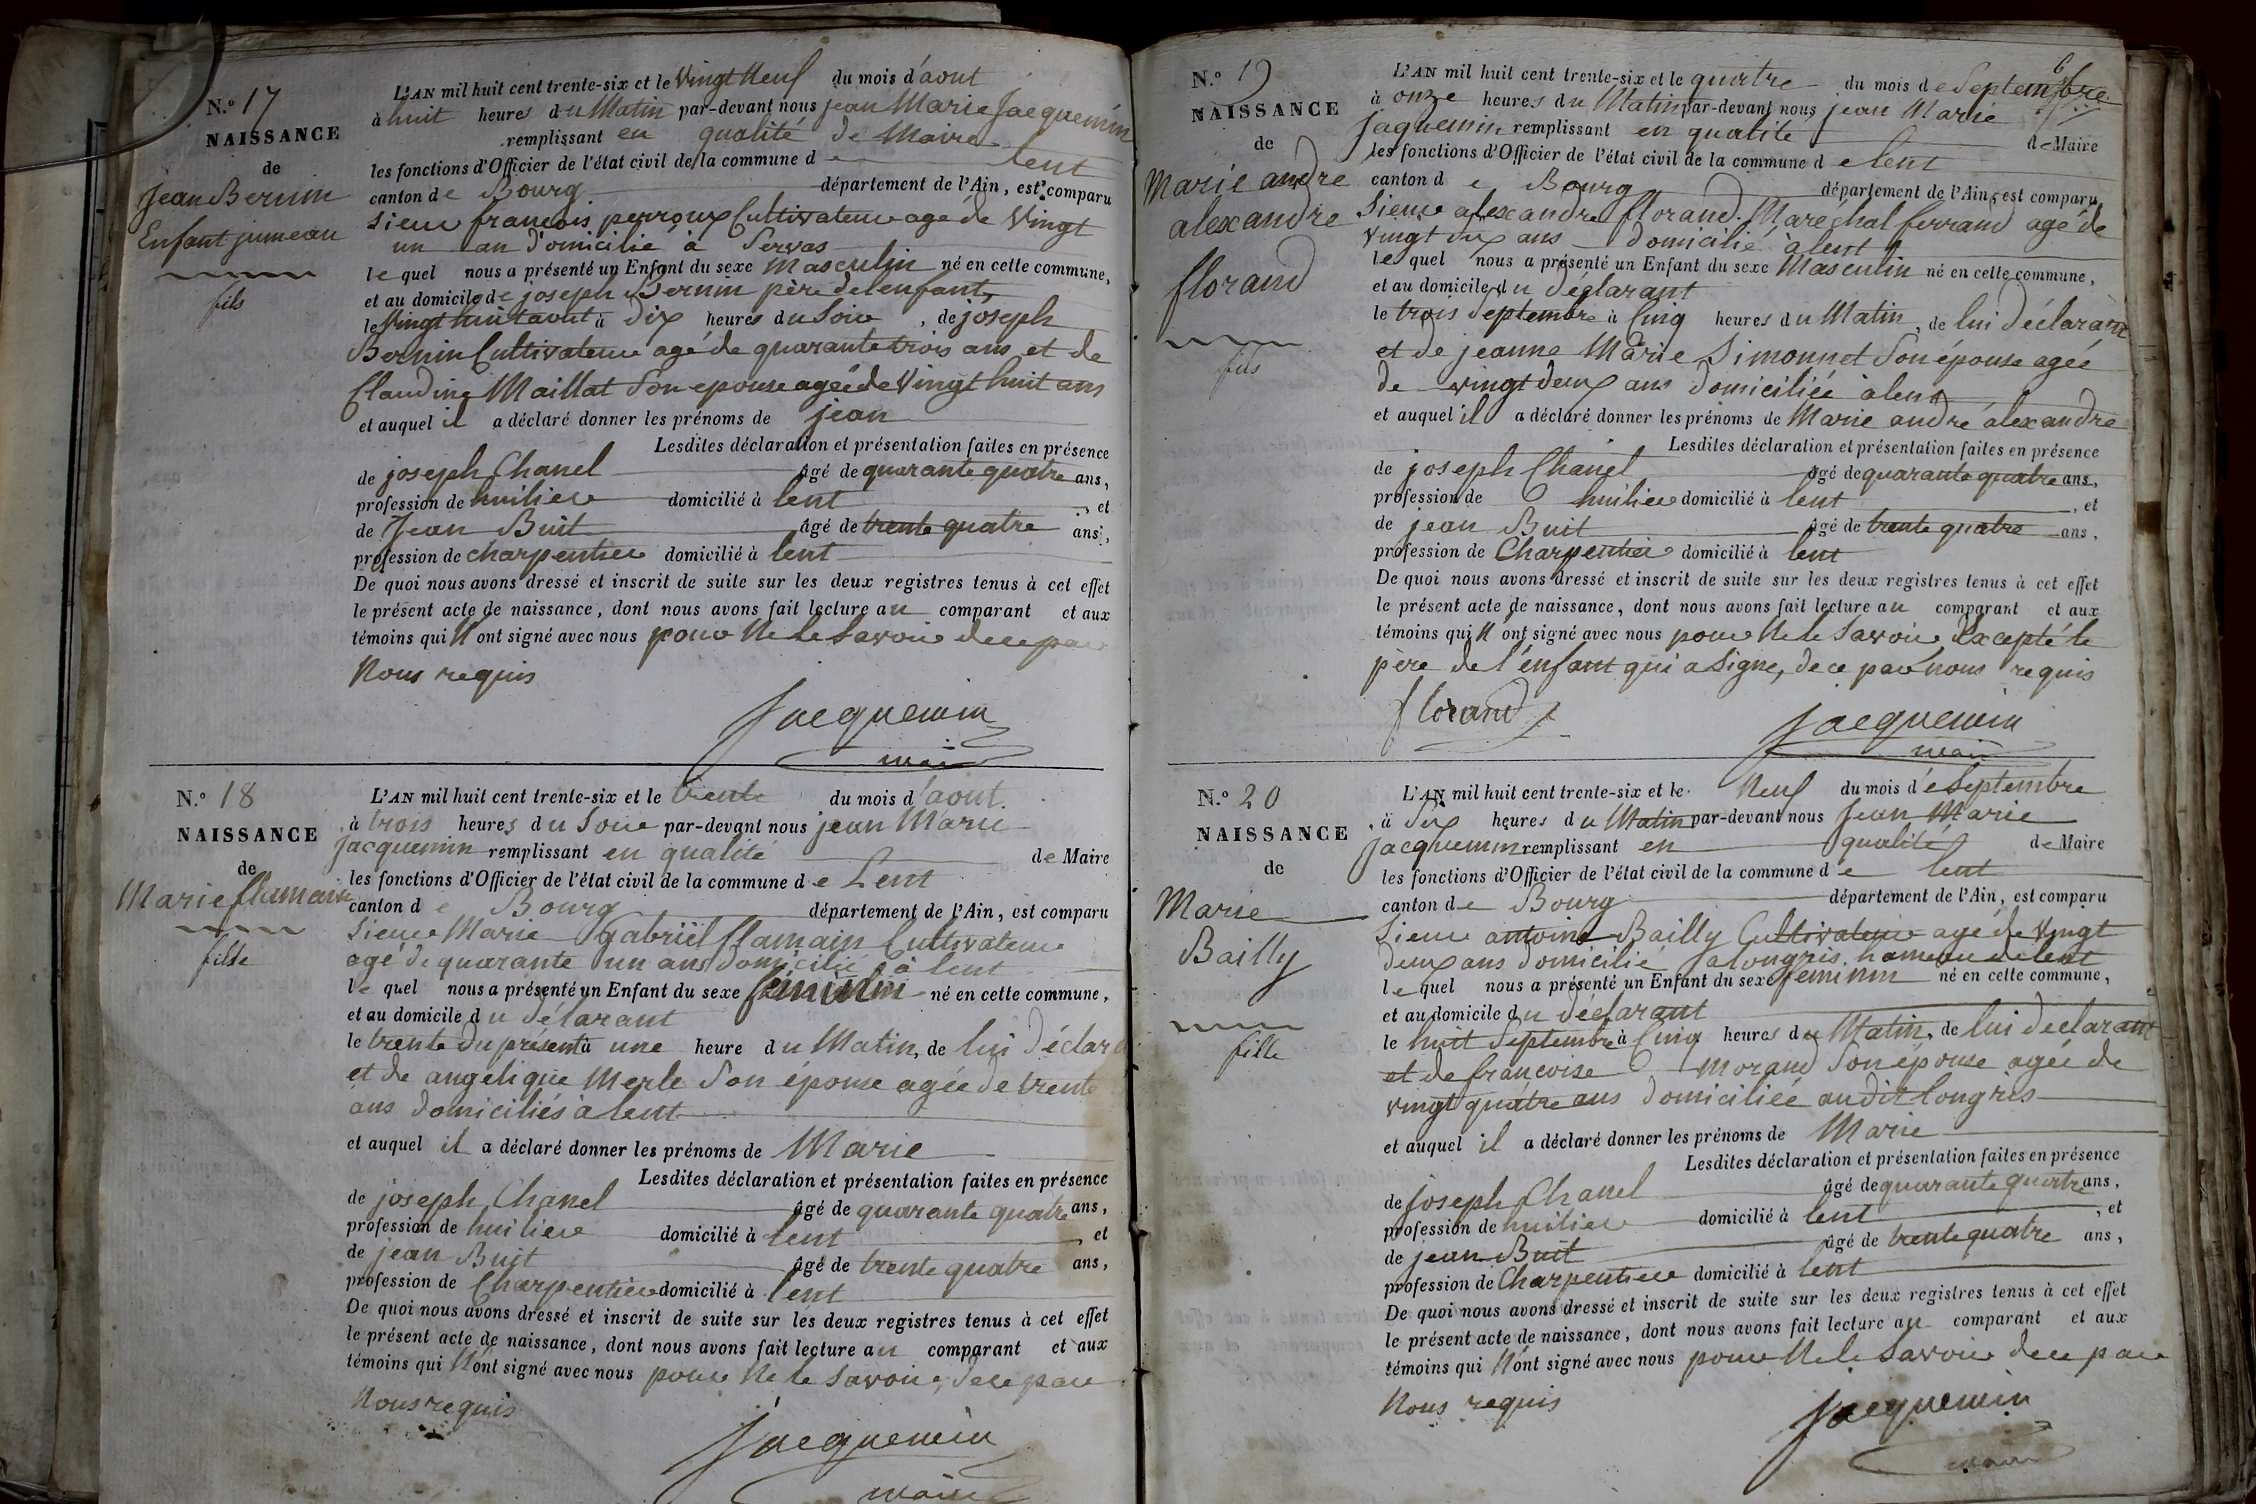 N.° 17
NAISSANCE
de
Jean Bernin
Enfant jumeau
fils
L'AN mil huit cent trente-six et le Vingt Neuf du mois d'aout
à huit heures du Matin par-devant nous jean Marie Jacquemin
remplissant en qualité de Maire
les fonctions d'Officier de l'état civil de la commune de lent
canton de Bourg département de l'Ain, est comparu
Sieur françois perroux Cultivateur agé de Vingt
un an domicilié à Servas
le quel nous a présenté un Enfant du sexe Masculin né en cette commune,
et au domicile de joseph Bernin père de lenfant,
le Vingt huit aout à dix heures du Soir, de joseph
Bernin Cultivateur agé de quarante trois ans et de
Claudine Maillat Son epouse agée de Vingt huit ans
et auquel il a déclaré donner les prénoms de jean
Lesdites déclaration et présentation faites en présence
de joseph Chanel âgé de quarante quatre ans,
profession de huilier domicilié à lent, et
de Jean Buit âgé de trente quatre ans,
profession de charpentier domicilié à lent
De quoi nous avons dressé et inscrit de suite sur les deux registres tenus à cet effet
le présent acte de naissance, dont nous avons fait lecture au comparant et aux
témoins qui N'ont signé avec nous pour Ne le Savoir de ce par
Nous requis
Jacquemin
maire
N.° 18
NAISSANCE
de
Marie flamain
fille
L'AN mil huit cent trente-six et le trente du mois d'aout.
à trois heures du Soir par-devant nous jean Marie
Jacquemin remplissant en qualité de Maire
les fonctions d'Officier de l'état civil de la commune de Lent
canton de Bourg département de l'Ain, est comparu
Sieur Marie Gabriël flamain Cultivateur
agé de quarante un ans domicilié à lent
le quel nous a présenté un Enfant du sexe féminin né en cette commune,
et au domicile du déclarant
le trente du présent à une heure du Matin, de lui déclarant
et de angelique Merle Son épouse agée de trente
ans domiciliés à lent
et auquel il a déclaré donner les prénoms de Marie
Lesdites déclaration et présentation faites en présence
de joseph Chanel âgé de quarante quatre ans,
profession de huilier domicilié à lent, et
de jean Buit âgé de trente quatre ans,
profession de Charpentier domicilié à lent
De quoi nous avons dressé et inscrit de suite sur les deux registres tenus à cet effet
le présent acte de naissance, dont nous avons fait lecture au comparant et aux
témoins qui N'ont signé avec nous pour Ne le Savoir, de ce par
Nous requis
Jacquemin
maire
N.° 19
NAISSANCE
de
Marie andre
alexandre
florand
fils
L'AN mil huit cent trente-six et le quatre du mois de Septembre
à onze heures du Matin par-devant nous jean Marie
Jaquemin remplissant en qualité de Maire
les fonctions d'Officier de l'état civil de la commune de lent
canton de Bourg département de l'Ain, est comparu
Sieur alexandre florand. Marechal ferrand agé de
Vingt deux ans domicilié à lent
le quel nous a présenté un Enfant du sexe Masculin né en cette commune,
et au domicile du déclarant
le trois Septembre à Cinq heures du Matin, de lui déclarant
et de jeanne Marie Simonnet Son épouse agée
de vingt deux ans domiciliée à lent
et auquel il a déclaré donner les prénoms de Marie andré alexandre
Lesdites déclaration et présentation faites en présence
de joseph Chanel âgé de quarante quatre ans,
profession de huilier domicilié à lent, et
de jean Buit âgé de trente quatre ans,
profession de Charpentier domicilié à lent
De quoi nous avons dressé et inscrit de suite sur les deux registres tenus à cet effet
le présent acte de naissance, dont nous avons fait lecture au comparant et aux
témoins qui N'ont signé avec nous pour Ne le Savoir Excepté le
père de l'enfant qui a Signé, de ce par nous requis
florand
Jacquemin
maire
N.° 20
NAISSANCE
de
Marie
Bailly
fille
L'AN mil huit cent trente-six et le Neuf du mois de Septembre
à Six heures du Matin par-devant nous Jean Marie
Jacquemin remplissant en qualité de Maire
les fonctions d'Officier de l'état civil de la commune de lent
canton de Bourg département de l'Ain, est comparu
Sieur antoine Bailly Cultivateur agé de Vingt
deux ans domicilié à longris hameau de lent
le quel nous a présenté un Enfant du sexe feminin né en cette commune,
et au domicile du déclarant
le huit Septembre à Cinq heures du Matin, de lui declarant
et de françoise morand Son épouse agée de
vingt quatre ans domiciliée audit longris
et auquel il a déclaré donner les prénoms de Marie
Lesdites déclaration et présentation faites en présence
de joseph Chanel âgé de quarante quatre ans,
profession de huilier domicilié à lent, et
de jean Buit âgé de trente quatre ans,
profession de Charpentier domicilié à lent
De quoi nous avons dressé et inscrit de suite sur les deux registres tenus à cet effet
le présent acte de naissance, dont nous avons fait lecture au comparant et aux
témoins qui N'ont signé avec nous pour Ne le Savoir de ce par
Nous requis
Jacquemin
maire